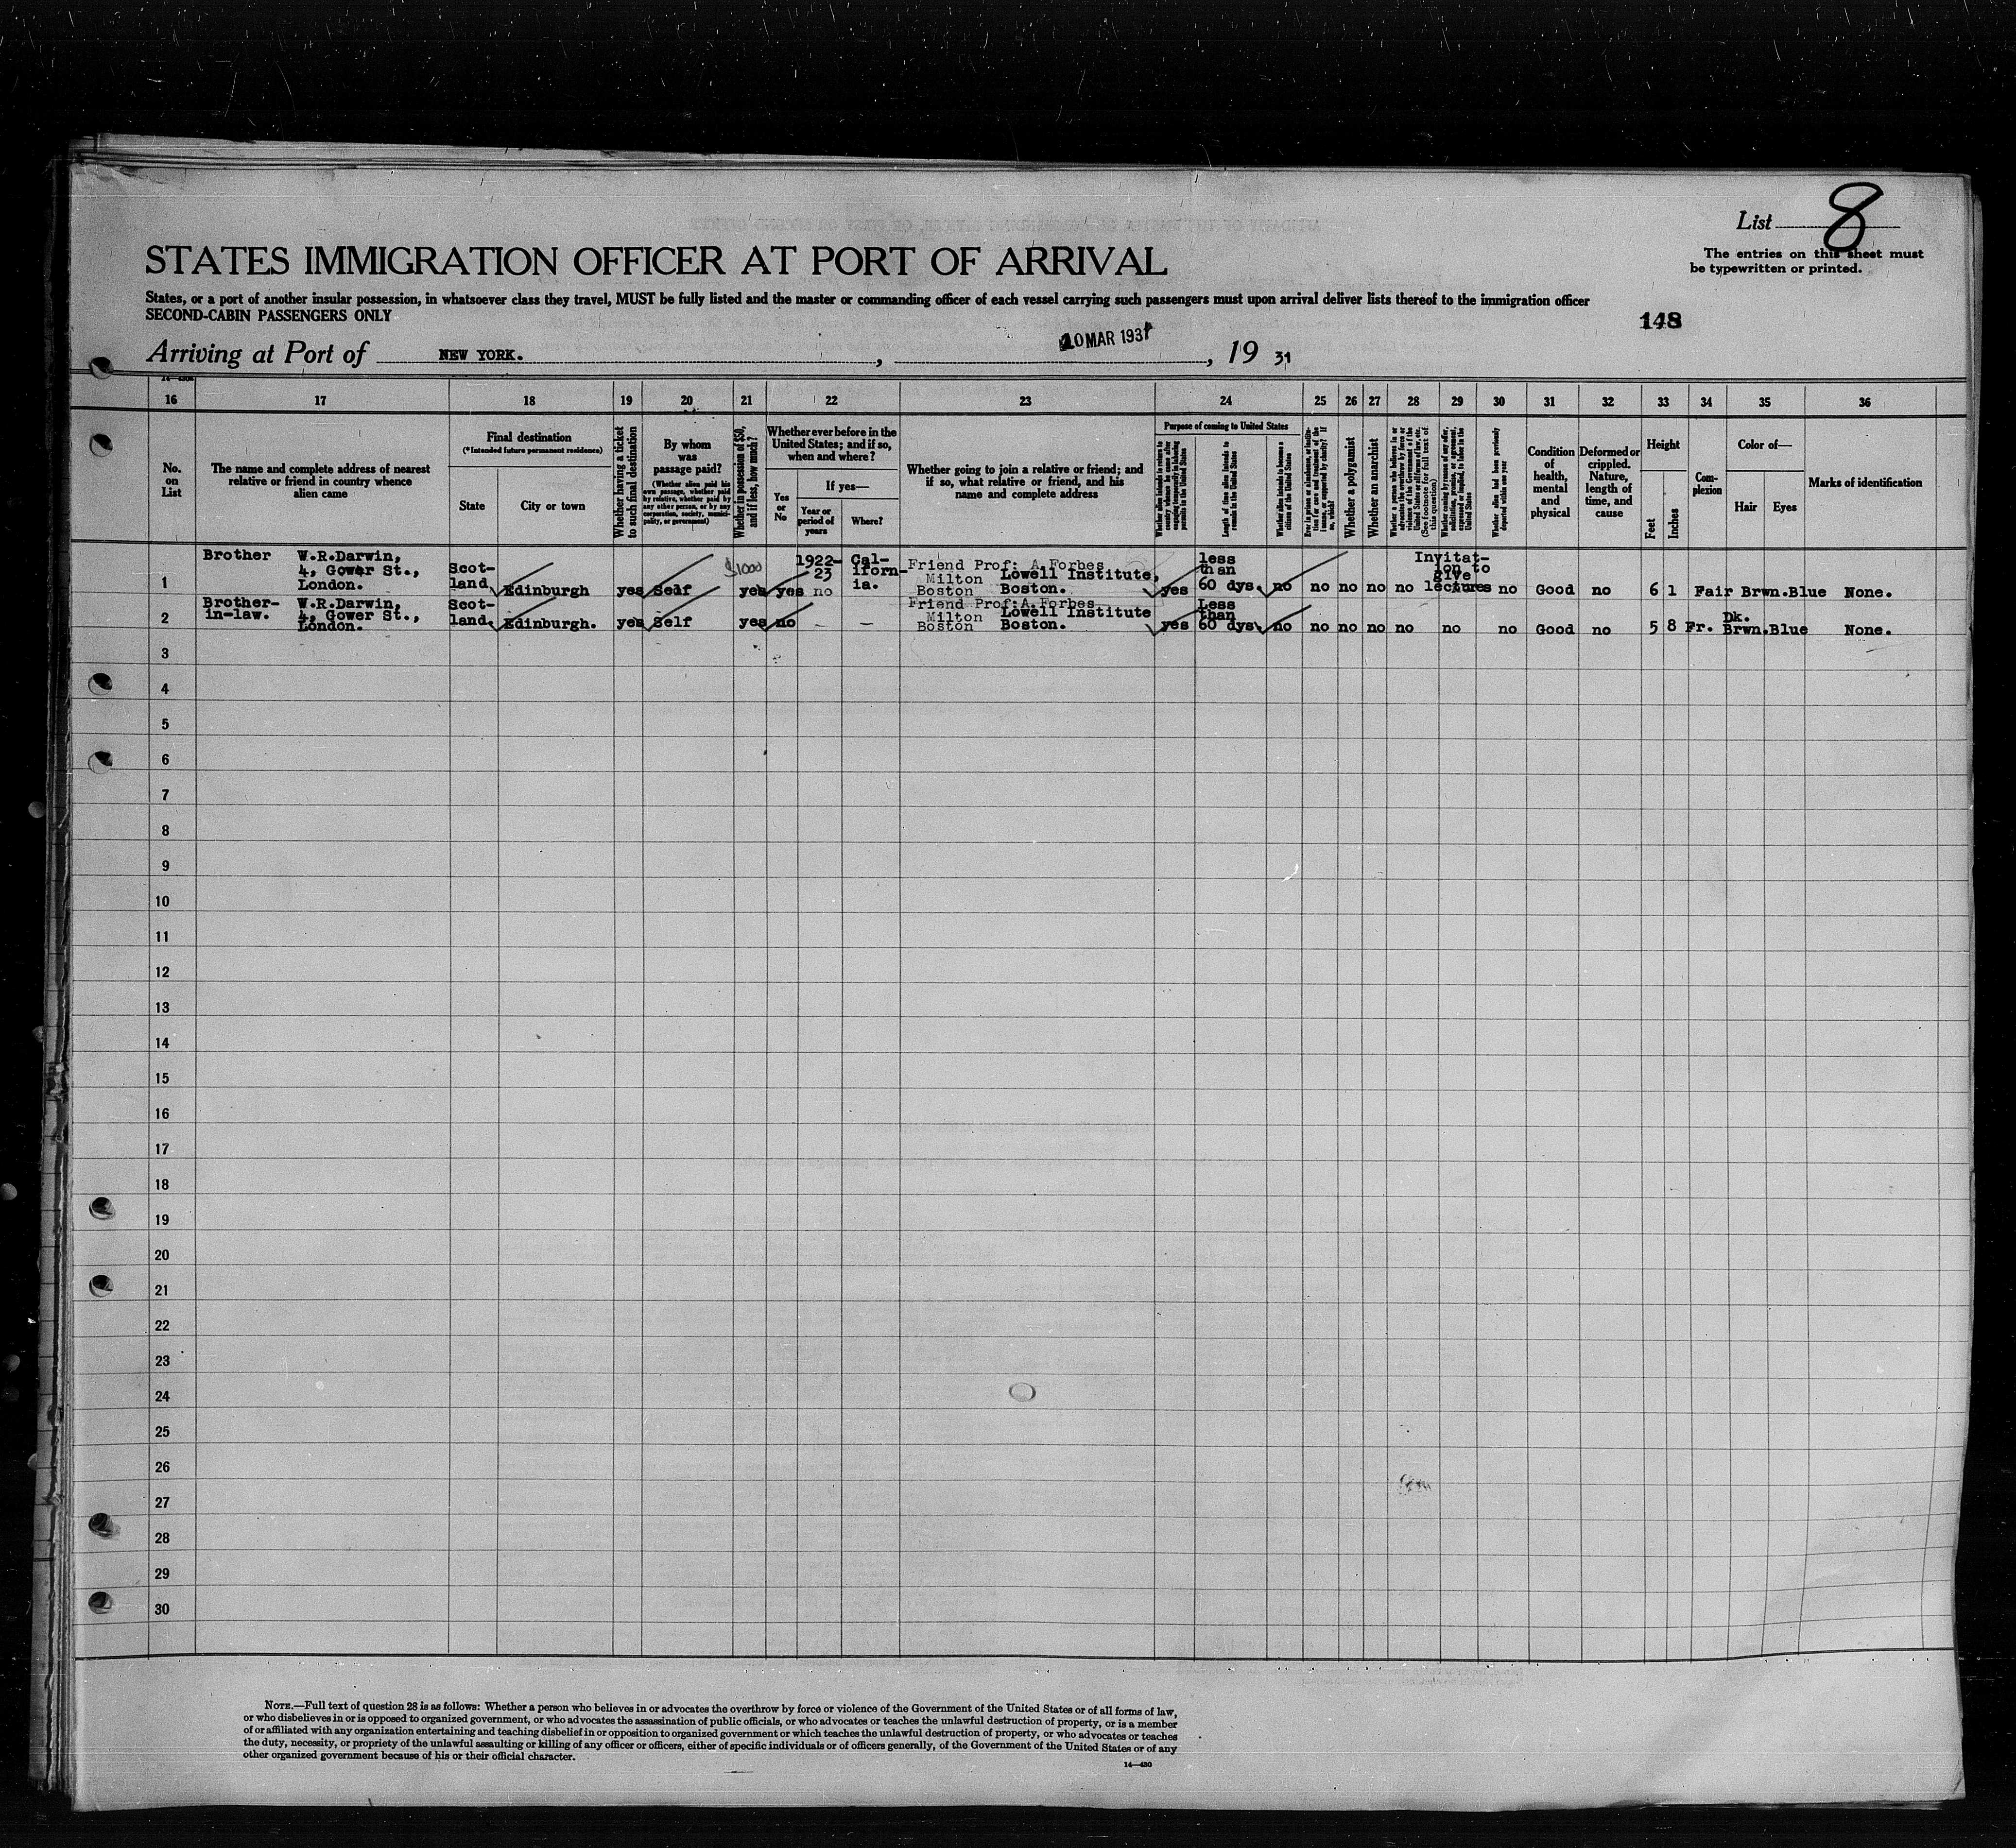 List 8
The entries on this sheet must
be typewritten or printed.
STATES IMMIGRATION OFFICER AT PORT OF ARRIVAL
States, or a port of another insular possession, in whatsoever class they travel, MUST be fully listed and the master or commanding officer of each vessel carrying such passengers must upon arrival deliver lists thereof to the immigration officer
SECOND-CABIN PASSENGERS ONLY
148
Arriving at Port of NEW YORK. , 10 MAR 1931 , 19 31
16 17 18 19 20 21 22 23 24 25 26 27 28 29 30 31 32 33 34 35 36
No.
on
List
The name and complete address of nearest
relative or friend in country whence
alien came
Final destination
(*Intended future permanent residence)
State
City or town
Whether having a ticket
to such final destination
By whom
was
passage paid?
(Whether alien paid his
own passage, whether paid
by relative, whether paid by
any other person, or by any
corporation, society, munici-
pality, or government)
Whether in possession of $50,
and if less, how much?
Whether ever before in the
United States; and if so,
when and where?
If yes—
Yes
or
No
Year or
period of
years
Where?
Whether going to join a relative or friend; and
if so, what relative or friend, and his
name and complete address
Purpose of coming to United States
Length of time alien intends to
remain in the United States
Whether alien intends to become a
citizen of the United States
Whether a polygamist
Whether an anarchist
Whether alien had been previously
deported within one year
Condition
of
health,
mental
and
physical
Deformed or
crippled.
Nature,
length of
time, and
cause
Height
Feet
Inches
Com-
plexion
Color of—
Hair
Eyes
Marks of identification
1
Brother W.R.Darwin,
4, Gower St.,
London.
Scot-
land
Edinburgh
yes
Self
$1000
yes
yes
1922-
23
no
Cal-
iforn-
ia.
Friend Prof: A. Forbes
Milton Lowell Institute,
Boston Boston.
yes
less
than
60 dys.
no
no no no no
Invitat-
ion to
give
lectures
no Good no 6 1 Fair Brwn.Blue None.
2
Brother-
in-law.
W.R.Darwin,
4, Gower St.,
London.
Scot-
land.
Edinburgh.
yes
Self
yes
no
— —
Friend Prof:A.Forbes
Milton Lowell Institute
Boston Boston.
yes
Less
than
60 dys.
no
no no no no no no Good no 5 8 Fr.
Dk.
Brwn.Blue
None.
3
4
5
6
7
8
9
10
11
12
13
14
15
16
17
18
19
20
21
22
23
24
25
26
27
28
29
30
NOTE.—Full text of question 28 is as follows: Whether a person who believes in or advocates the overthrow by force or violence of the Government of the United States or of all forms of law,
or who disbelieves in or is opposed to organized government, or who advocates the assassination of public officials, or who advocates or teaches the unlawful destruction of property, or is a member
of or affiliated with any organization entertaining and teaching disbelief in or opposition to organized government or which teaches the unlawful destruction of property, or who advocates or teaches
the duty, necessity, or propriety of the unlawful assaulting or killing of any officer or officers, either of specific individuals or of officers generally, of the Government of the United States or of any
other organized government because of his or their official character.
14—430